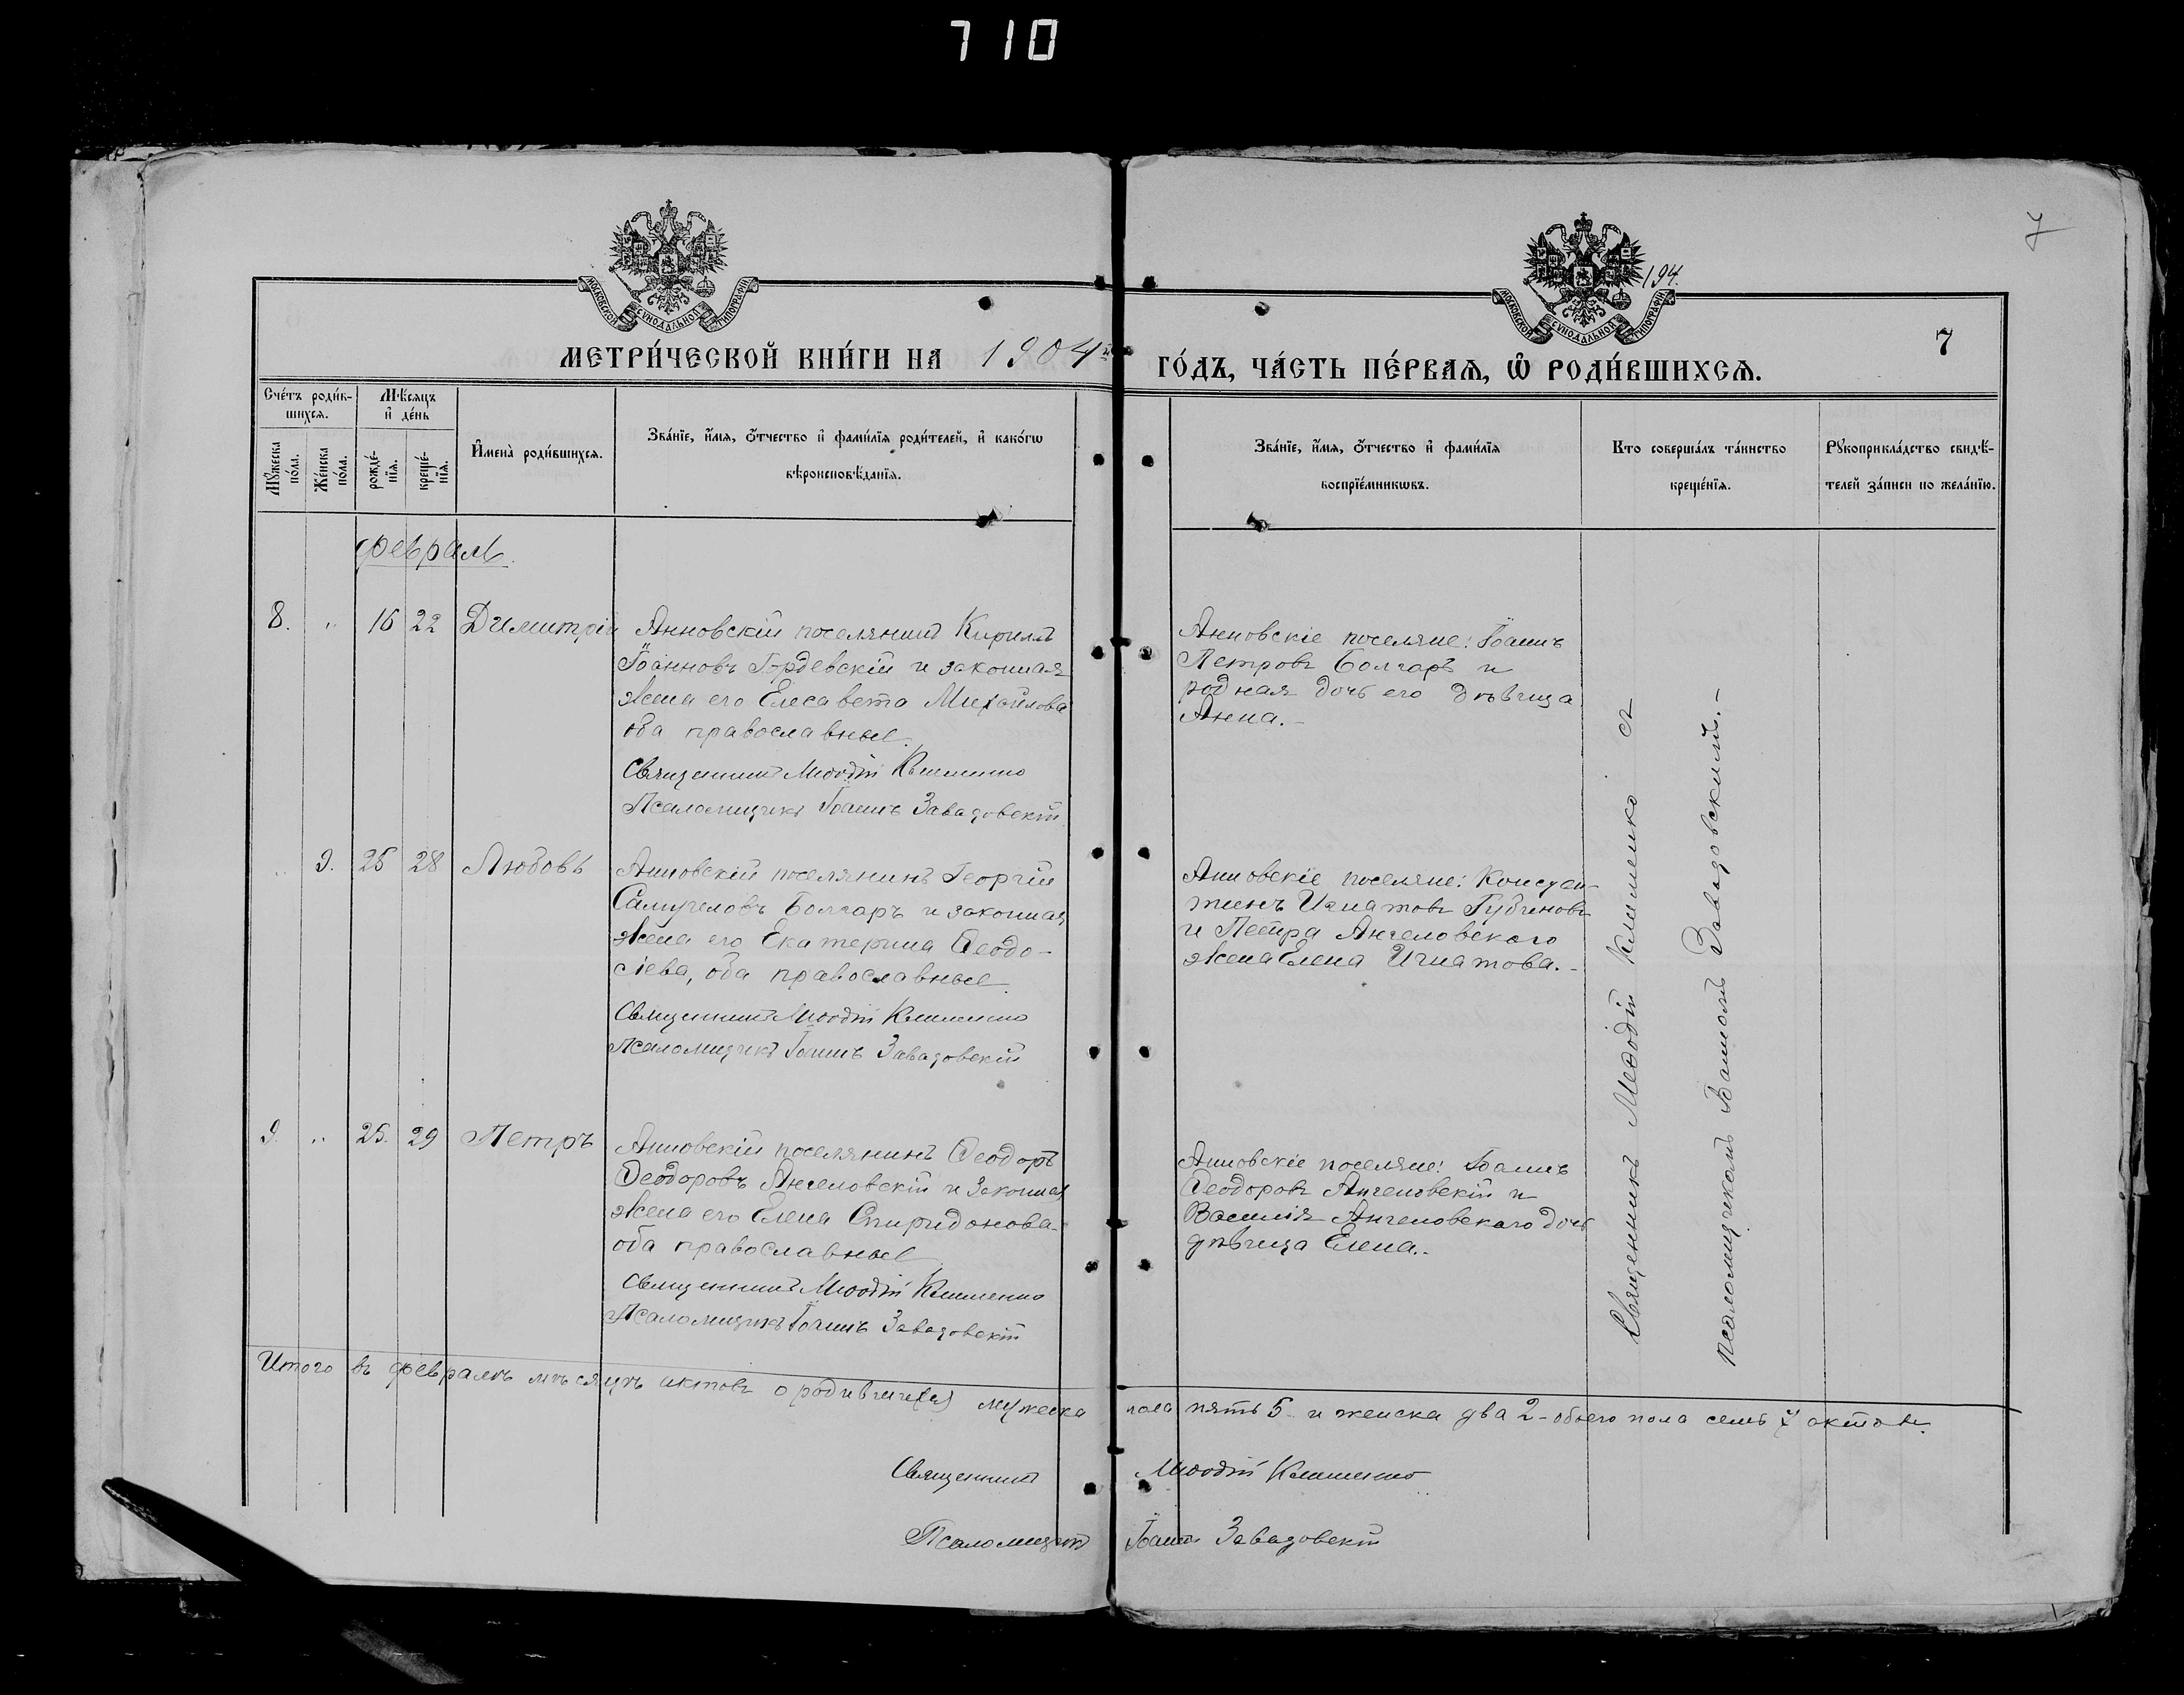 710
7
МОСКОВСКОЙ СѴНОДАЛЬНОЙ ТИПОГРАФІИ
МОСКОВСКОЙ СѴНОДАЛЬНОЙ ТИПОГРАФІИ
194.
7
МЕТРИ́ЧЕСКОЙ КНИ́ГИ НА 1904й ГО́ДЪ, ЧА́СТЬ ПЕ́РВАѦ, Ѡ҆ РОДИ́ВШИХСѦ.
Сче́тъ роди́в-
шихсѧ.
Мꙋ́жеска по́ла.
Же́нска по́ла.
Мѣ́сѧцъ и҆ де́нь
рожде́-нїѧ.
креще́-нїѧ.
И҆мена̀ роди́вшихсѧ.
Зва́нїе, и҆́мѧ, ѻ҆́тчество и҆ фами́лїѧ роди́телей, и҆ како́гѡ
вѣроисповѣ́данїѧ.
Зва́нїе, и҆́мѧ, ѻ҆́тчество и҆ фами́лїѧ
воспрїе́мникѡвъ.
Кто соверша́лъ та́инство
креще́нїѧ.
Рꙋкоприкла́дство свидѣ́-
телей за́писи по жела́нїю.
Февраль.
8. " 16 22 Димитрій
Анновскій поселянинъ Кириллъ
Іоанновъ Гордевскій и законная
жена его Елисавета Михайлова
оба православные.
Священникъ Меѳодій Клименко
Псаломщикъ Іоаннъ Завадовскій
Анновскіе поселяне: Іоаннъ
Петровъ Болгаръ и
родная дочь его дѣвица
Анна.-
" 2. 25 28 Любовь
Анновскій поселянинъ Георгій
Самуиловъ Болгаръ и законная
жена его Екатерина Ѳеодо-
сіева, оба православные.
Священникъ Меѳодій Клименко
Псаломщикъ Іоаннъ Завадовскій
Анновскіе поселяне: Констан-
тинъ Игнатовъ Губиновъ
и Петра Ангеловскаго
жена Елена Игнатова.-
9. " 25. 29 Петръ
Анновскій поселянинъ Ѳеодоръ
Ѳеодоровъ Ангеловскій и законная
жена его Елена Спиридонова-
оба православные
Священникъ Меѳодій Клименко
Псаломщикъ Іоаннъ Завадовскій
Анновскіе поселяне: Іоаннъ
Ѳеодоровъ Ангеловскій и
Василія Ангеловскаго дочь
дѣвица Елена.-
Священникъ Меѳодій Клименко съ
псаломщикомъ Іоанномъ Завадовскимъ.-
Итого въ февралѣ мѣсяцѣ актовъ о родившихся мужеска пола пять 5 и женска два 2 - обоего пола семь 7 актовъ.
Священникъ Меѳодій Клименко
Псаломщикъ Іоаннъ Завадовскій